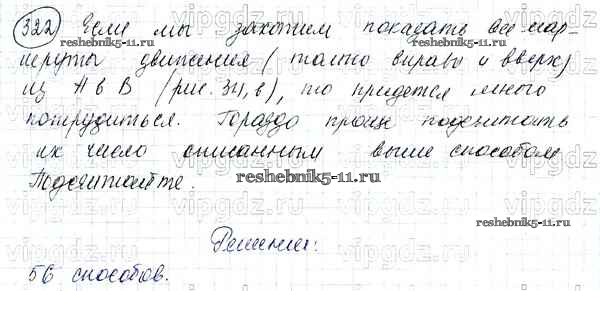 322 Если мы захотим показать все мар-
шруты движения (только вправо и вверх)
из А в В (рис. 34, в), то придется много
потрудиться. Гораздо проще подсчитать
их число описанным выше способом.
Подсчитайте.
Решение:
56 способов.
reshebnik5-11.ru
reshebnik5-11.ru
reshebnik5-11.ru
reshebnik5-11.ru
vipgdz.ru